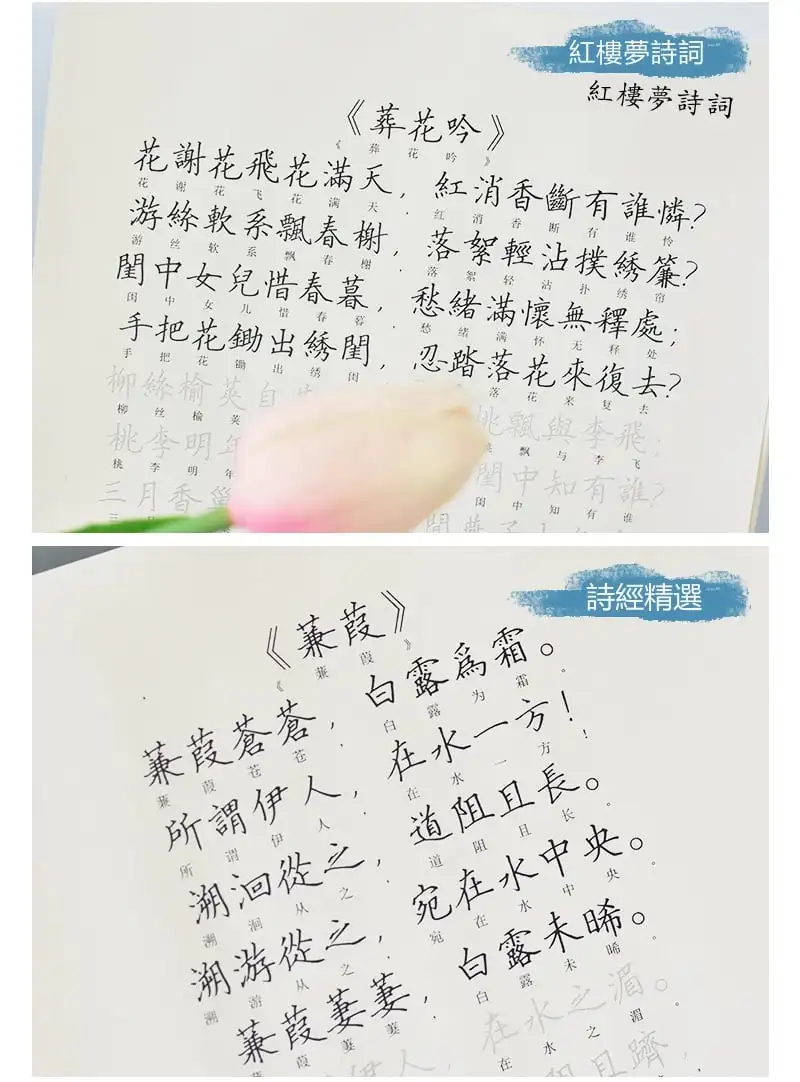 紅樓夢詩詞
紅樓夢詩詞
《葬花吟》
《葬花吟》
花謝花飛花滿天，紅消香斷有誰憐？
花谢花飞花满天，红消香断有谁怜
游絲軟系飄春榭，落絮輕沾撲綉簾？
游丝软系飘春榭，落絮轻沾扑绣帘
閨中女兒惜春暮，愁緒滿懷無釋處；
闺中女儿惜春暮，愁绪满怀无释处
手把花鋤出綉閨，忍踏落花來復去？
手把花锄出绣闺 落花来复去
柳絲榆莢自 桃飄與李飛；
柳丝榆荚 飘与李飞
桃李明年 閨中知有誰？
桃李明年 闺中知有谁
三月香巢
詩經精選
《蒹葭》
《蒹葭》
蒹葭蒼蒼，白露爲霜。
蒹葭苍苍，白露为霜。
所謂伊人，在水一方！
所谓伊人，在水一方！
溯洄從之，道阻且長。
溯洄从之，道阻且长。
溯游從之，宛在水中央。
溯游从之，宛在水中央。
蒹葭萋萋，白露未晞。
蒹葭萋萋，白露未晞。
伊人，在水之湄。
在水之湄
道阻且躋，